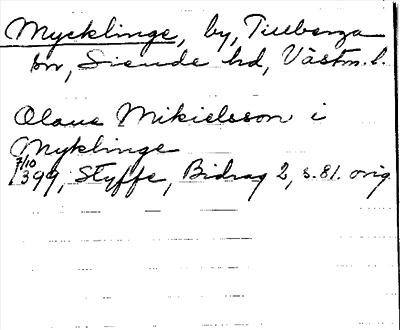 Mycklinge, by, Tillberga
sn, Siende hd, Västm. l.
Olaus Mikielsson i
Myklinge
7/10
1399, Styffe, Bidrag 2, s. 81. orig